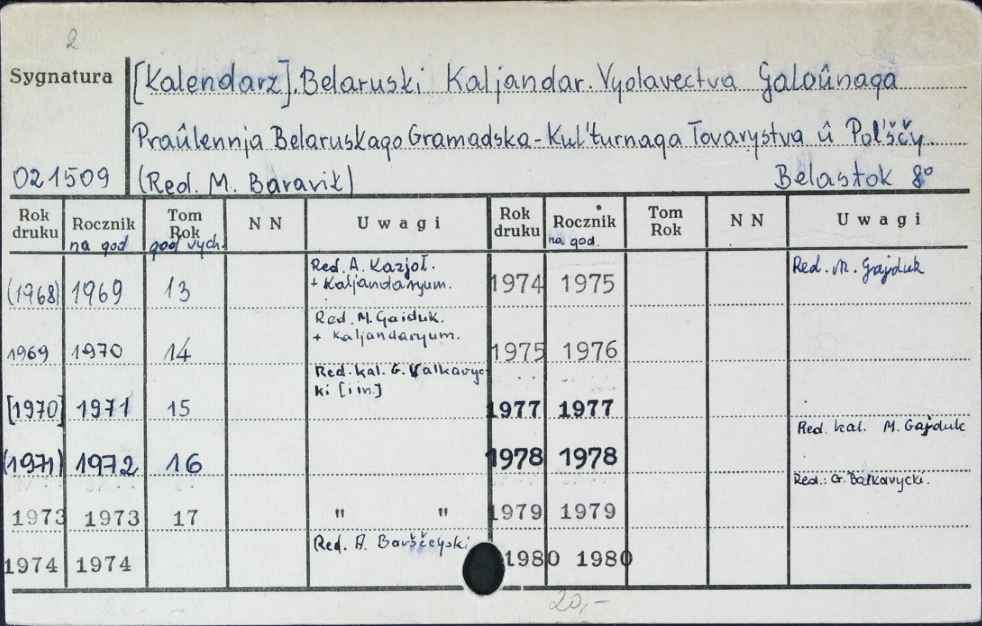 2
Sygnatura [Kalendarz]. Belaruski Kaljandar. Vydavectva Galoŭnaga
Praŭlennja Belaruskago Gramadska-Kul'turnaga Tovarystva ŭ Pol'ščy.
021509 (Red. M. Baravik) Belastok 8°
Rok druku Rocznik na god Tom Rok god vych. N N Uwagi Rok druku Rocznik na god. Tom Rok N N Uwagi
(1968) 1969 13 Red. A. Kazjoł. + Kaljandaryum. 1974 1975 Red. M. Gajduk
1969 1970 14 Red. M. Gaiduk. + Kaljandaryum. 1975 1976
[1970] 1971 15 Red. kal. G. Valkavycki [i in.] 1977 1977
(1971) 1972 16 1978 1978 Red. kal. M. Gajduk
1973 1973 17 " " 1979 1979 Red.: G. Valkavycki.
1974 1974 Red. A. Barščeŭski 1980 1980
20,-